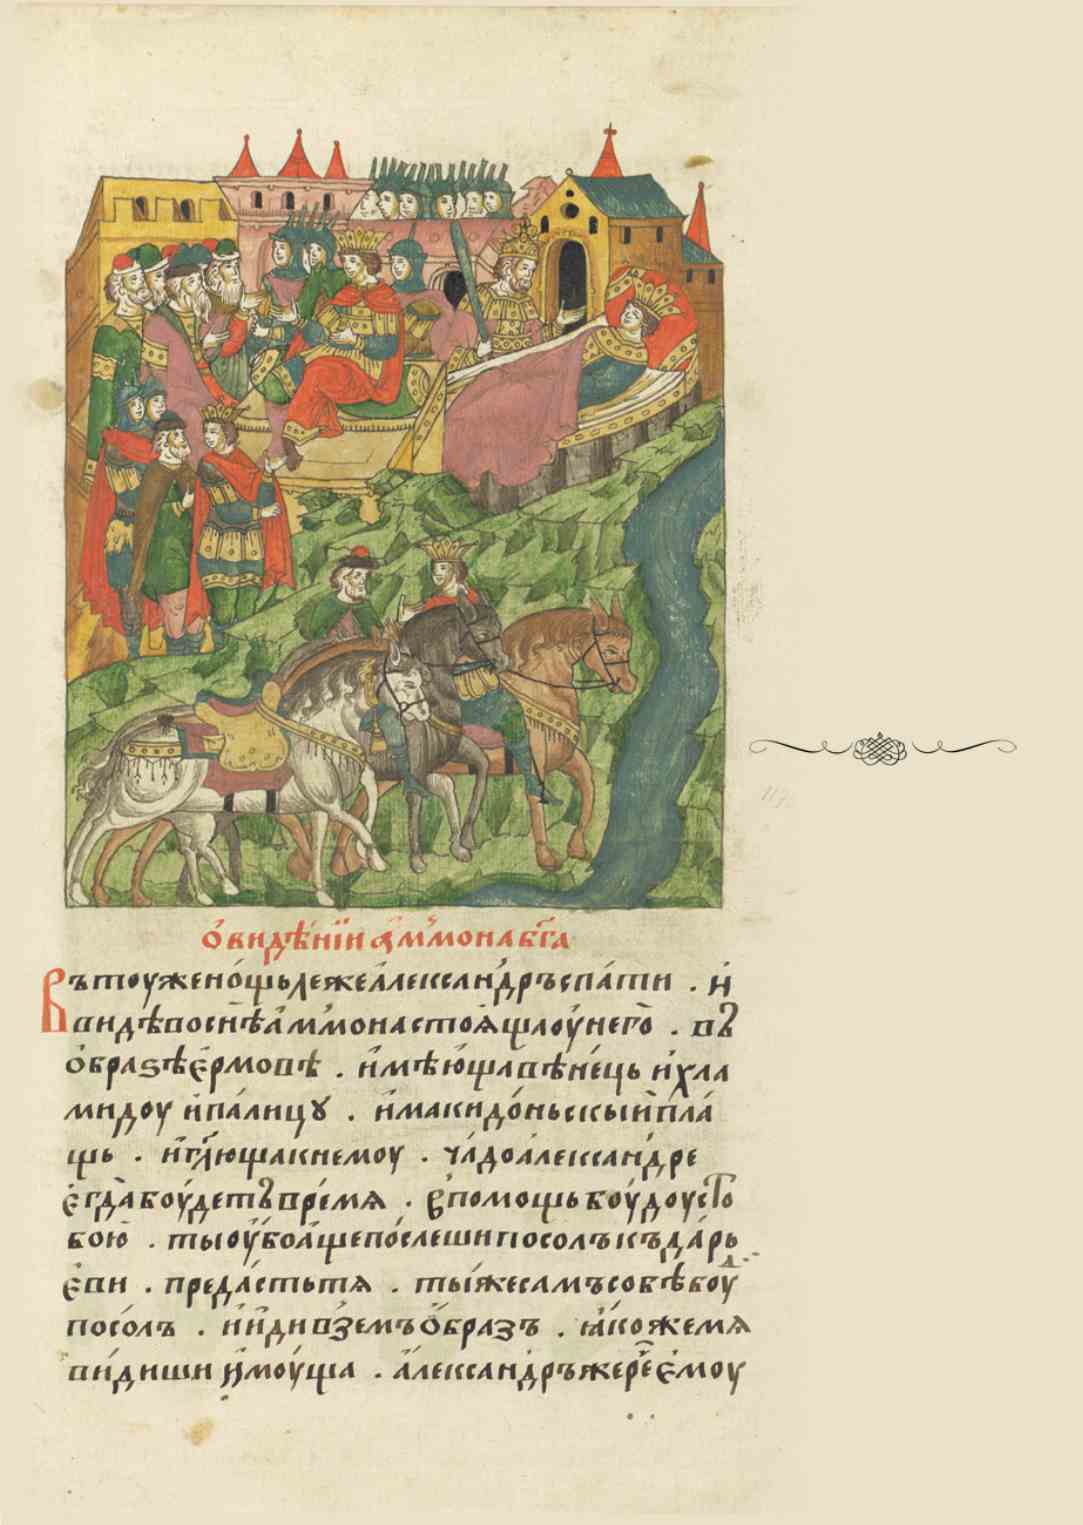 О видѣнїи аммона бг҃а
Въ тоуже нощь леже александръ спати . и
видѣ во снѣ аммона стоѧща оу него . въ
образѣ ермовѣ . имѣюща вѣнець и хла
мидоу и палицꙋ . и макидоньскый пла
щь . и гл҃юща к немоу . чадо александре
егда боудетъ времѧ . в помощь боудоу с то
бою . ты оубо аще послеши посолъ къ дарь
еви . предастьтѧ . тыже самъ собѣ боуд
посолъ . и иди вземъ образъ . ꙗкоже мѧ
видиши имоуща . александръ же рече емоу